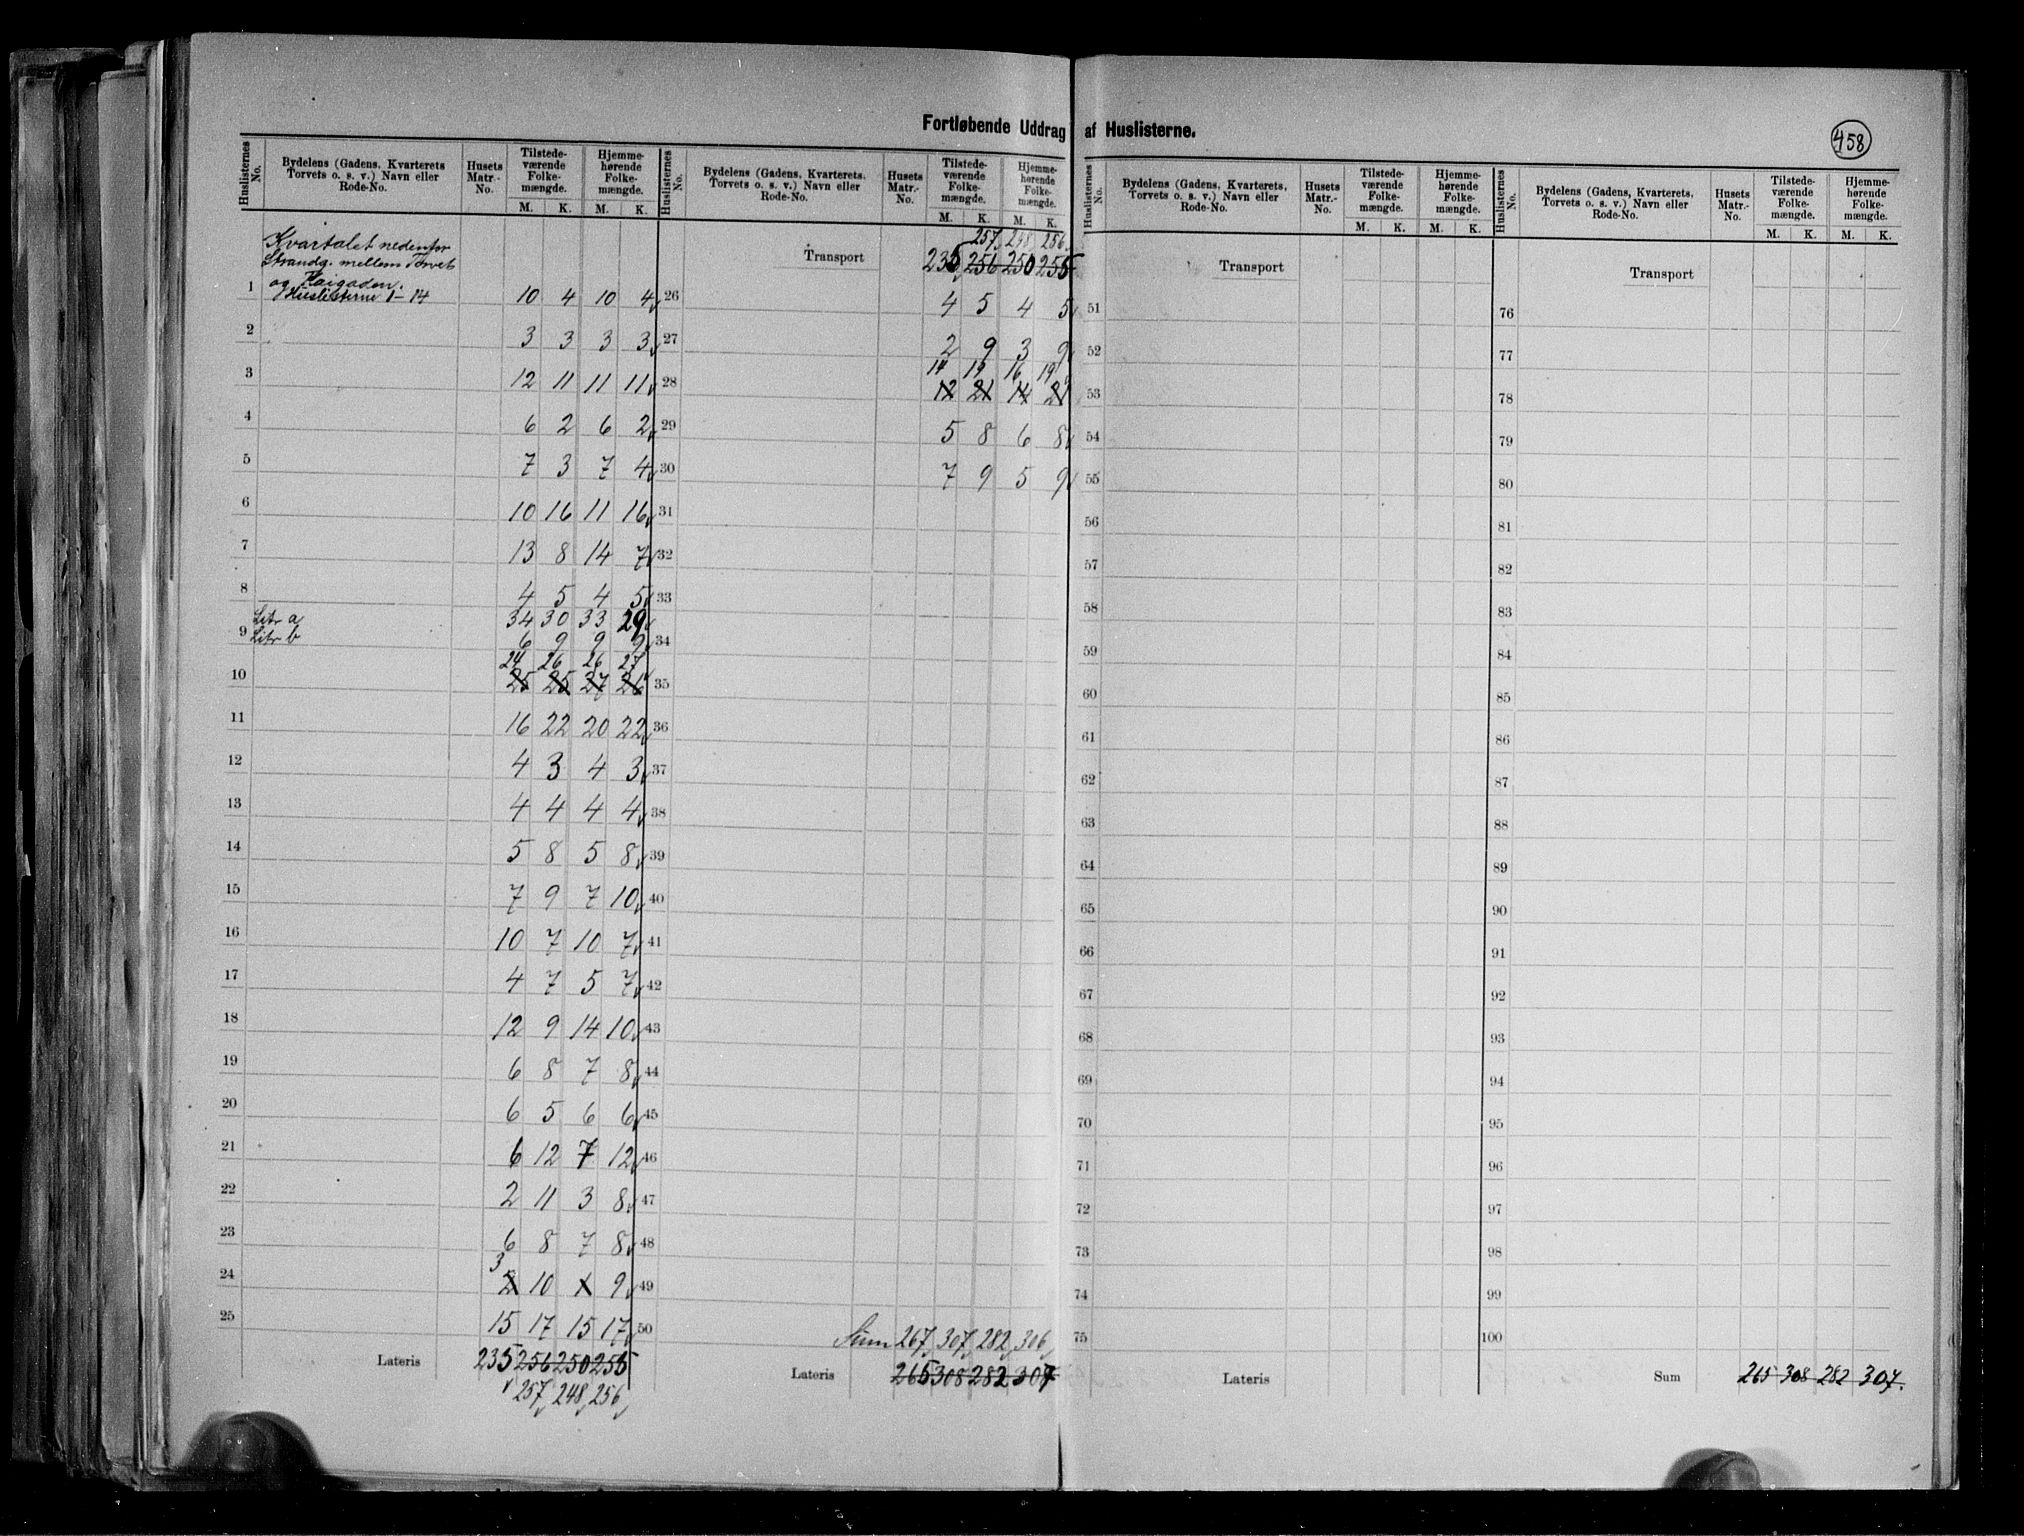 Fortløbende Uddrag af Huslisterne.
458
Huslisternes No. | Bydelens (Gadens, Kvarterets Torvets o. s. v.) Navn eller Rode-No. | Husets Matr.-No. | Tilstedeværende Folkemængde. M. K. | Hjemmehørende Folkemængde. M. K.
Kvartalet nedenfor
Strandg. mellem Torvet
og Kaigaden.
Huslisterne 1-14
1 10 4 10 4
2 3 3 3 3
3 12 11 11 11
4 6 2 6 2
5 7 3 7 4
6 10 16 11 16
7 13 8 14 7
8 4 5 4 5
Litr a 34 30 33 29
9 Litr b 6 9 9 9
24 26 26 27
10 25 25 27 26
11 16 22 20 22
12 4 3 4 3
13 4 4 4 4
14 5 8 5 8
15 7 9 7 10
16 10 7 10 7
17 4 7 5 7
18 12 9 14 10
19 6 8 7 8
20 6 5 6 6
21 6 12 7 12
22 2 11 3 8
23 6 8 7 8
3
24 2 10 1 9
25 15 17 15 17
Lateris 235 256 250 255
257 248 256
Huslisternes No. | Bydelens (Gadens, Kvarterets, Torvets o. s. v.) Navn eller Rode-No. | Husets Matr.-No. | Tilstedeværende Folkemængde. M. K. | Hjemmehørende Folkemængde. M. K.
257 248 256
Transport 235 256 250 255
26 4 5 4 5
27 2 9 3 9
14 19 16 19
28 12 21 14 21
29 5 8 6 8
30 7 9 5 9
31
32
33
34
35
36
37
38
39
40
41
42
43
44
45
46
47
48
49
50
Sum 267 307 282 306
Lateris 265 308 282 307
Huslisternes No. | Bydelens (Gadens, Kvarterets, Torvets o. s. v.) Navn eller Rode-No. | Husets Matr.-No. | Tilstedeværende Folkemængde. M. K. | Hjemmehørende Folkemængde. M. K.
Transport
51
52
53
54
55
56
57
58
59
60
61
62
63
64
65
66
67
68
69
70
71
72
73
74
75
Lateris
Huslisternes No. | Bydelens (Gadens, Kvarterets, Torvets o. s. v.) Navn eller Rode-No. | Husets Matr.-No. | Tilstedeværende Folkemængde. M. K. | Hjemmehørende Folkemængde. M. K.
Transport
76
77
78
79
80
81
82
83
84
85
86
87
88
89
90
91
92
93
94
95
96
97
98
99
100
Sum 265 308 282 307.